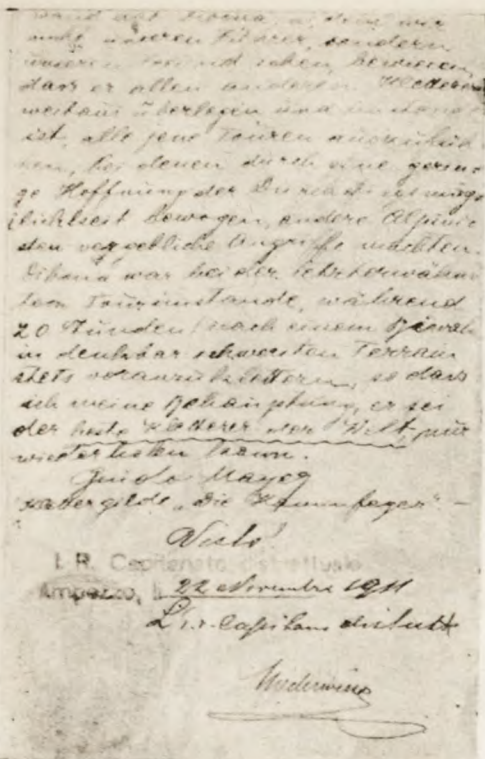 wand hat Dibona, in dem wir
nicht unseren Führer, sondern
unseren Freund sehen, bewiesen,
dass er allen anderen Kletterern
weitaus überlegen und imstande
ist, alle jene Touren auszufüh
ren, bei denen durch eine gerin
ge Hoffnung der Durchdringung
lichkeit bewogen, andere Alpinis
ten vergebliche Angriffe machten.
Dibona war bei der letzterwähn
ten Tour imstande, während
20 Stunden (nach einem Biwak
in denkbar schwersten Terrain
stets voranzuklettern, so dass
ich meine Behauptung, er sei
der beste Kletterer der Welt, nur
wiederholen kann.
Guido Mayer
Klettergilde „Die
Visto
I. R. Capitanato distrettuale
Ampezzo, li 22 Novembre 1911
L'i. r. Capitano distrett